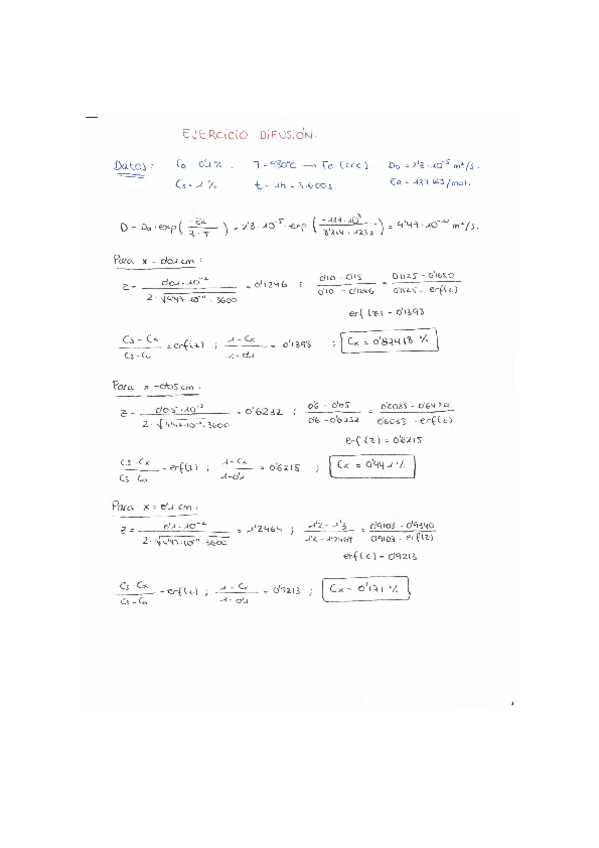 EJERCICIO DIFUSIÓN.
Datos: C₀ = 0'1 %. T = 980ºC → Fe (FCC). D₀ = 2'3·10⁻⁵ m²/s.
Cs = 1 % t = 1h = 3.600 s.
D = D₀·exp( ) = 2'3·10⁻⁵·exp( ) = 4'47· m²/s.
Para x = 0'01 cm:
z = 0'01·10⁻² / 2·√ ·3600 = 0'1246 ; 0'10 - 0'15 / 0'10 - 0'1246 = 0'1125 - 0'1680 / 0'1125 - erf(z)
erf(z) = 0'1398
Cs - Cx / Cs - C₀ = erf(z) ; 1 - Cx / 1 - 0'1 = 0'1398 ; Cx = 0'87418 %
Para x = 0'05 cm:
z = 0'05·10⁻² / 2·√ ·3600 = 0'6232 ; 0'6 - 0'65 / 0'6 - 0'6232 = 0'6039 - 0'6420 / 0'6039 - erf(z)
erf(z) = 0'6215
Cs - Cx / Cs - C₀ = erf(z) ; 1 - Cx / 1 - 0'1 = 0'6215 ; Cx = 0'441 %
Para x = 0'1 cm:
z = 0'1·10⁻² / 2·√ ·3600 = 1'2464 ; 1'2 - 1'3 / 1'2 - 1'2464 = 0'9103 - 0'9340 / 0'9103 - erf(z)
erf(z) = 0'9213
Cs - Cx / Cs - C₀ = erf(z) ; 1 - Cx / 1 - 0'1 = 0'9213 ; Cx = 0'171 %